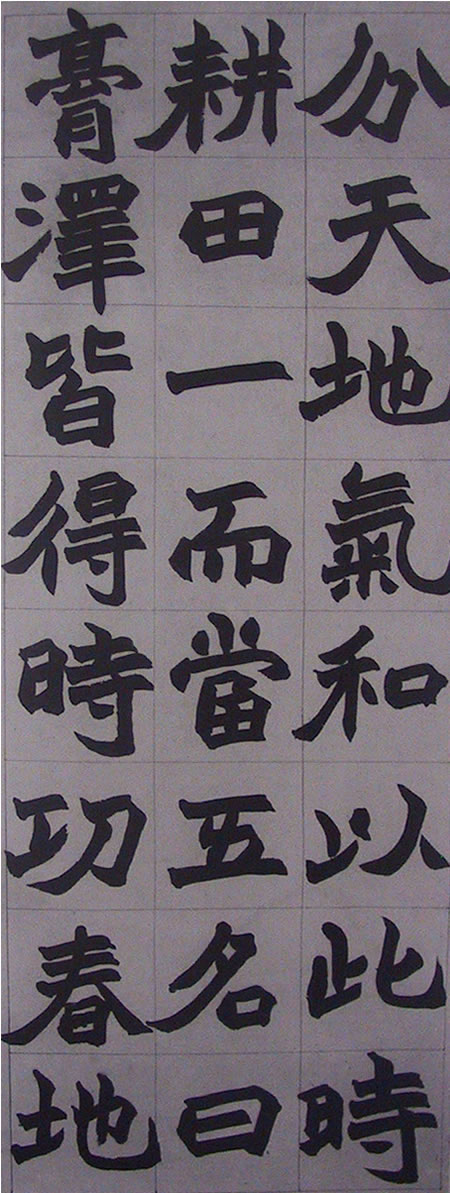 分天地氣和以此時
耕田一而當五名曰
膏澤皆得時功春地